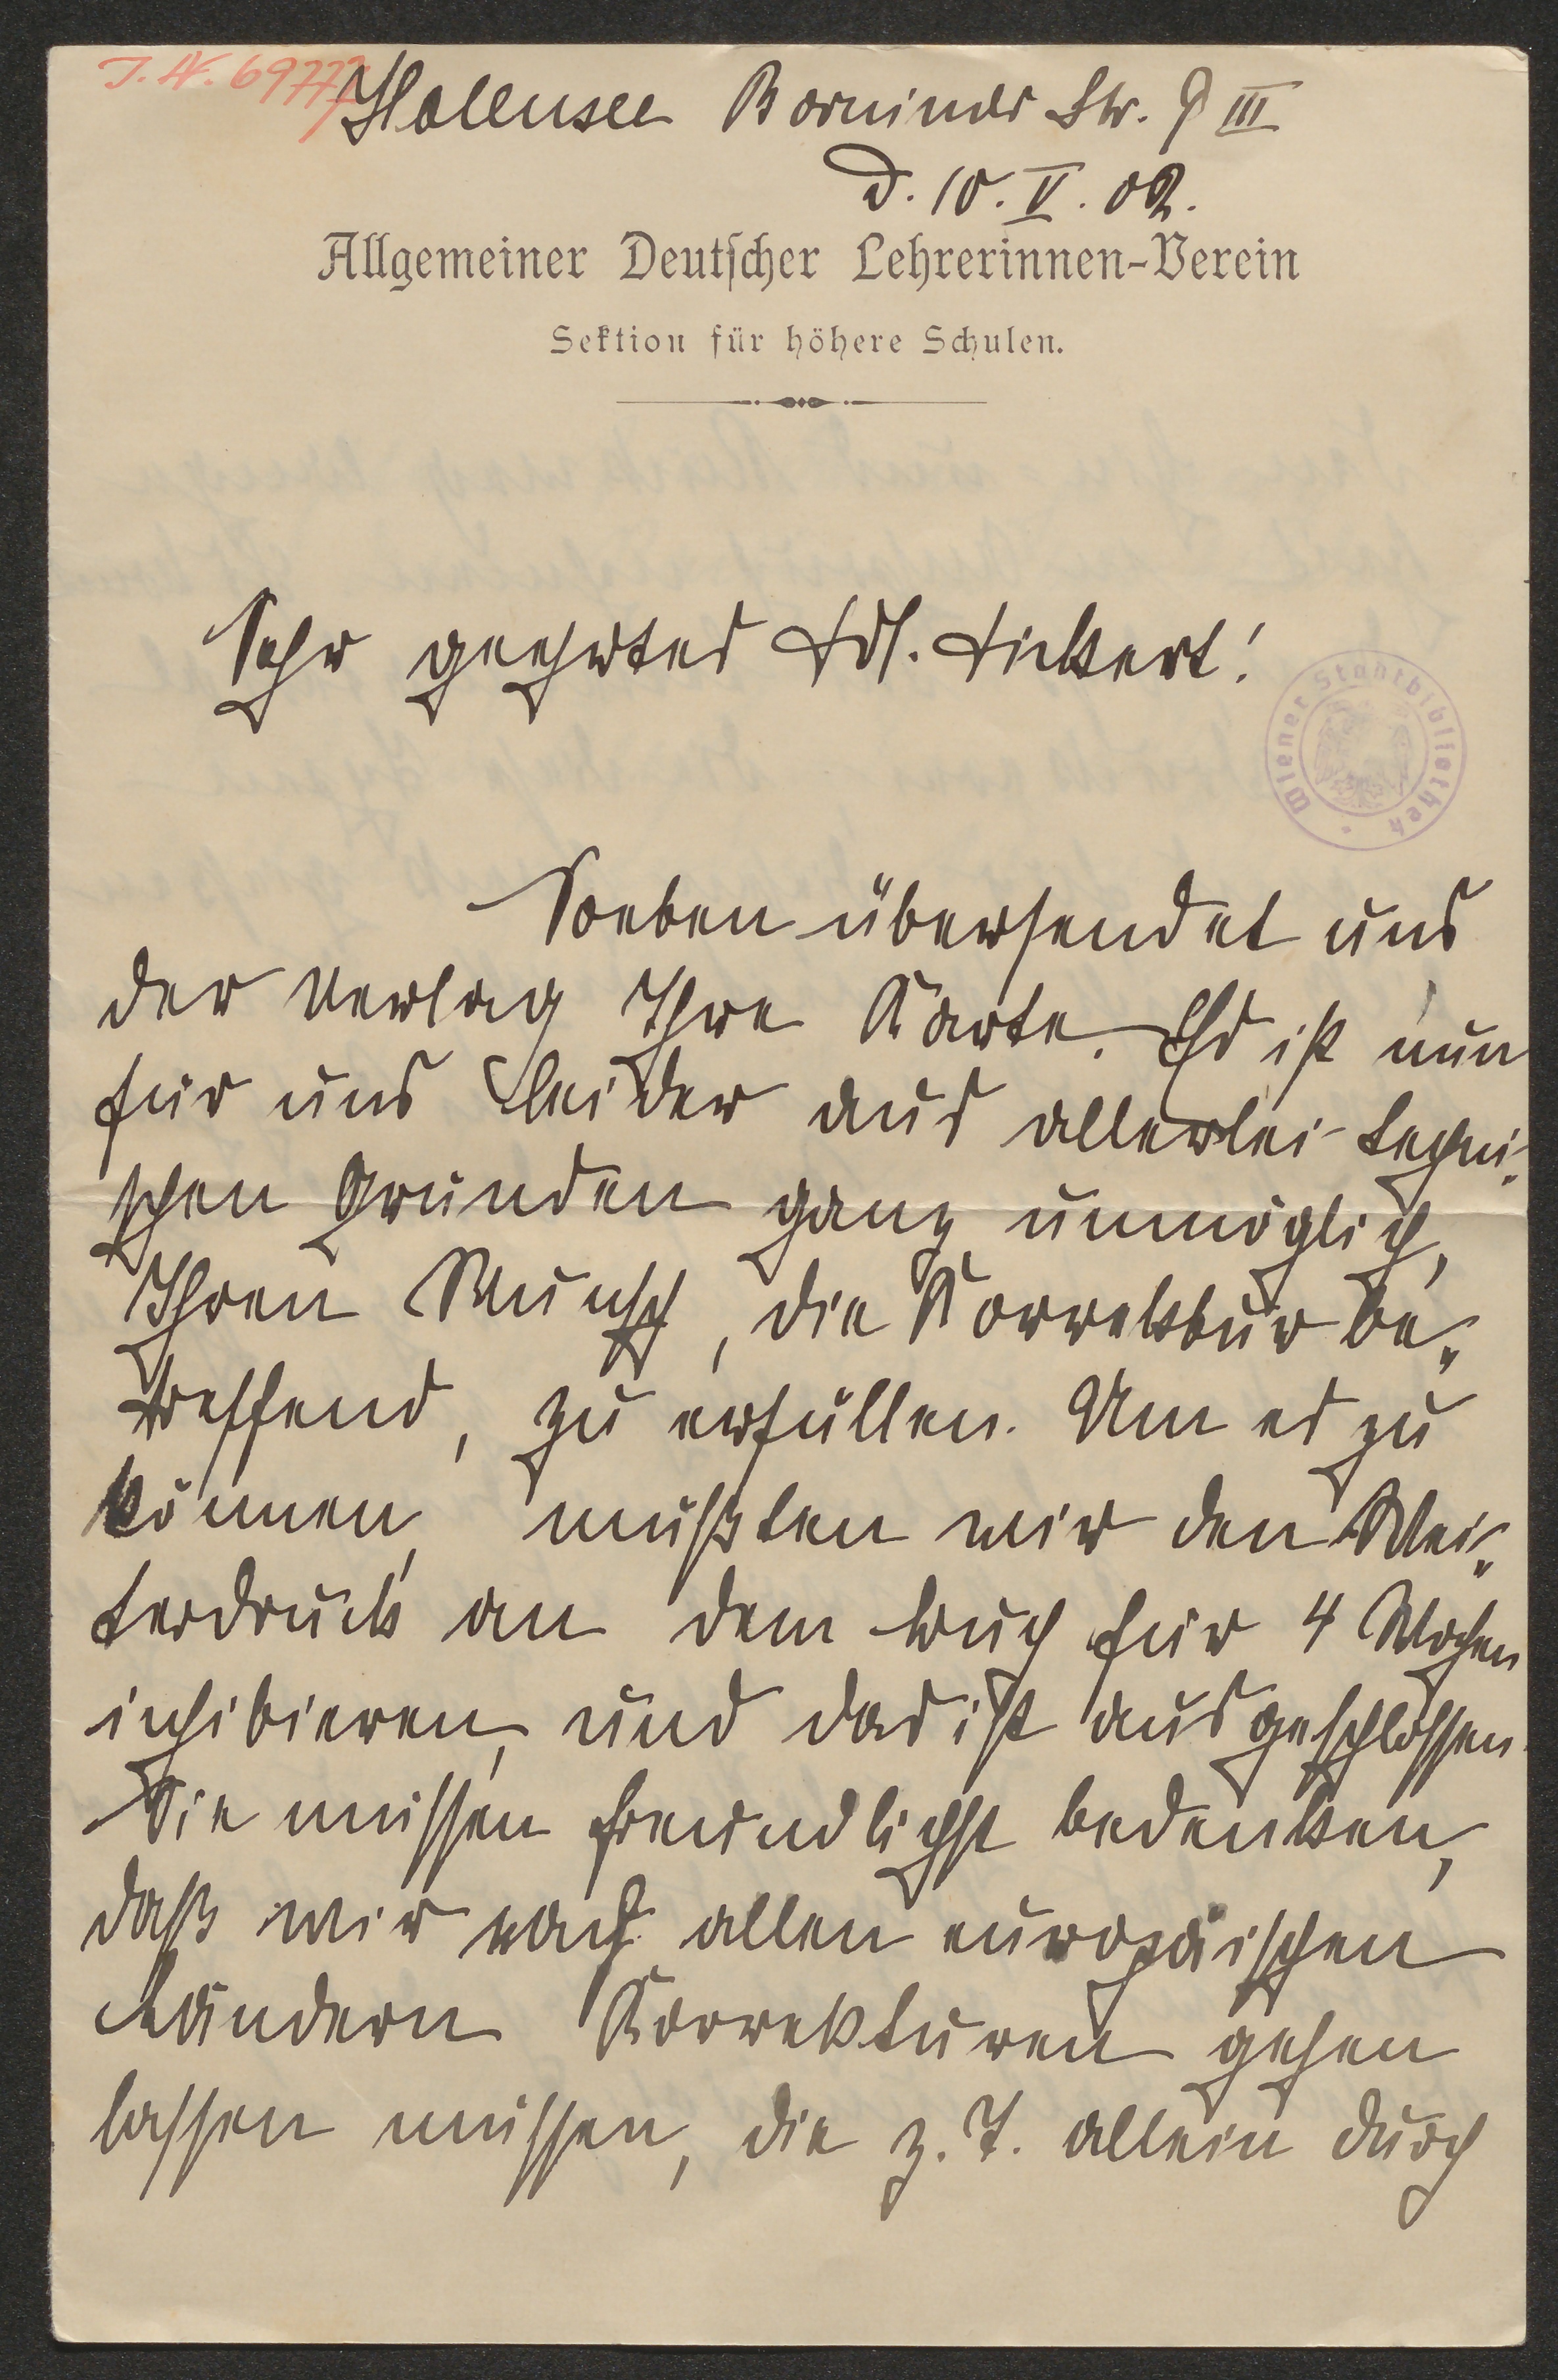 J. N. 69777
Halensee Bornimer Str. 9 III
d. 10. V. 02.
Allgemeiner Deutscher Lehrerinnen-Verein
Sektion für höhere Schulen.
Sehr geehrtes Frl. Fickert!
Wiener Stadtbibliothek
Soeben übersendet uns
der Verlag Ihre Karte. Es ist nun
für uns leider aus allerlei techni-
schen Gründen ganz unmöglich,
Ihren Wunsch, die Korrektur be-
treffend, zu erfüllen. Um es zu
können, müßten wir den Wei-
terdruck an dem Buch für 4 Wochen
inhibieren, und das ist ausgeschlossen.
Sie müssen freundlichst bedenken,
daß wir nach allen europäischen
Ländern Korrekturen gehen
lassen müssen, die z. T. allein durch